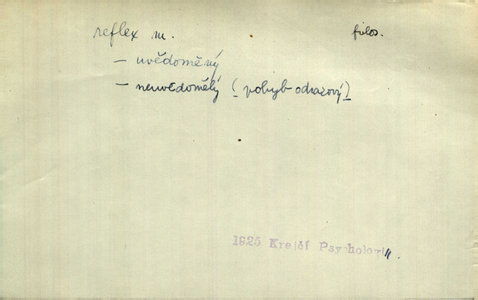 reflex m. filos.
– uvědoměný
– neuvědomělý (pohyb odrazový)
1925 Krejčí Psychologie